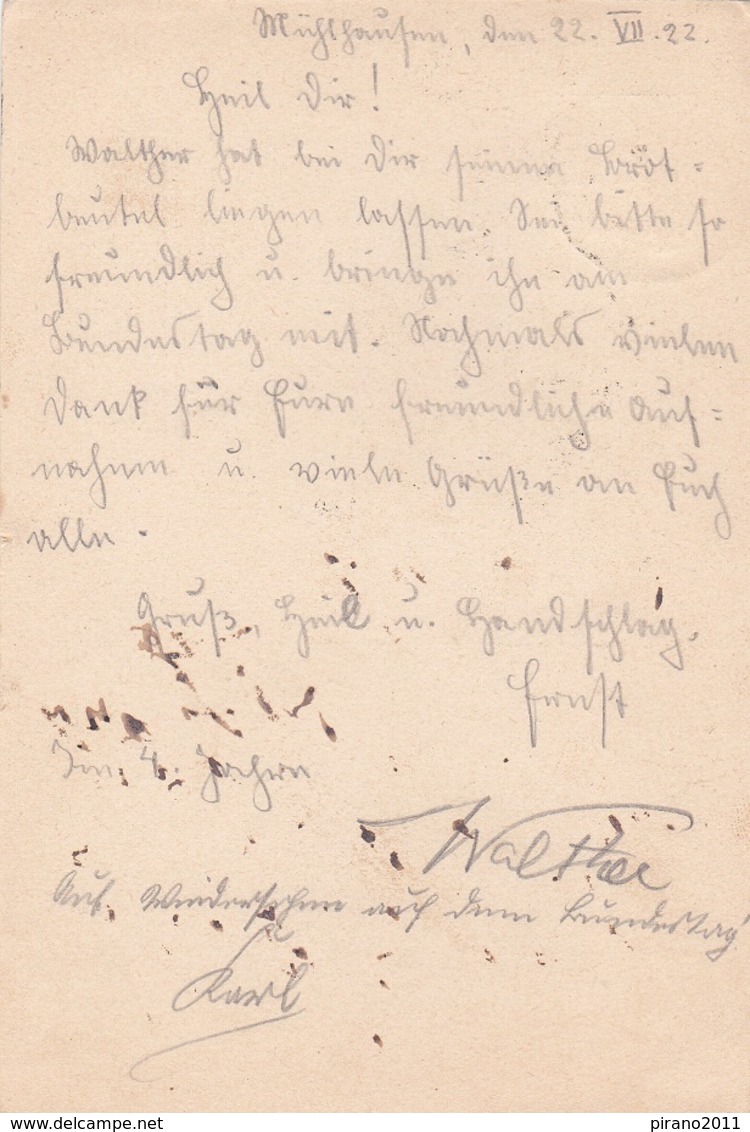 Mühlhausen, den 22. VII. 22.
Heil Dir!
Walther hat bei Dir seinen Brot=
beutel liegen lassen. Sei bitte so
freundlich u. bringe ihn am
Bundestag mit. Nochmals vielen
Dank für Eure freundliche Auf=
nahme u. viele Grüße an Euch
alle.
Gruß, Heil u. Handschlag.
Ernst
Im 4. Jahre
Walther
Auf Wiedersehen auf dem Bundestag!
Karl
www.delcampe.net
pirano2011